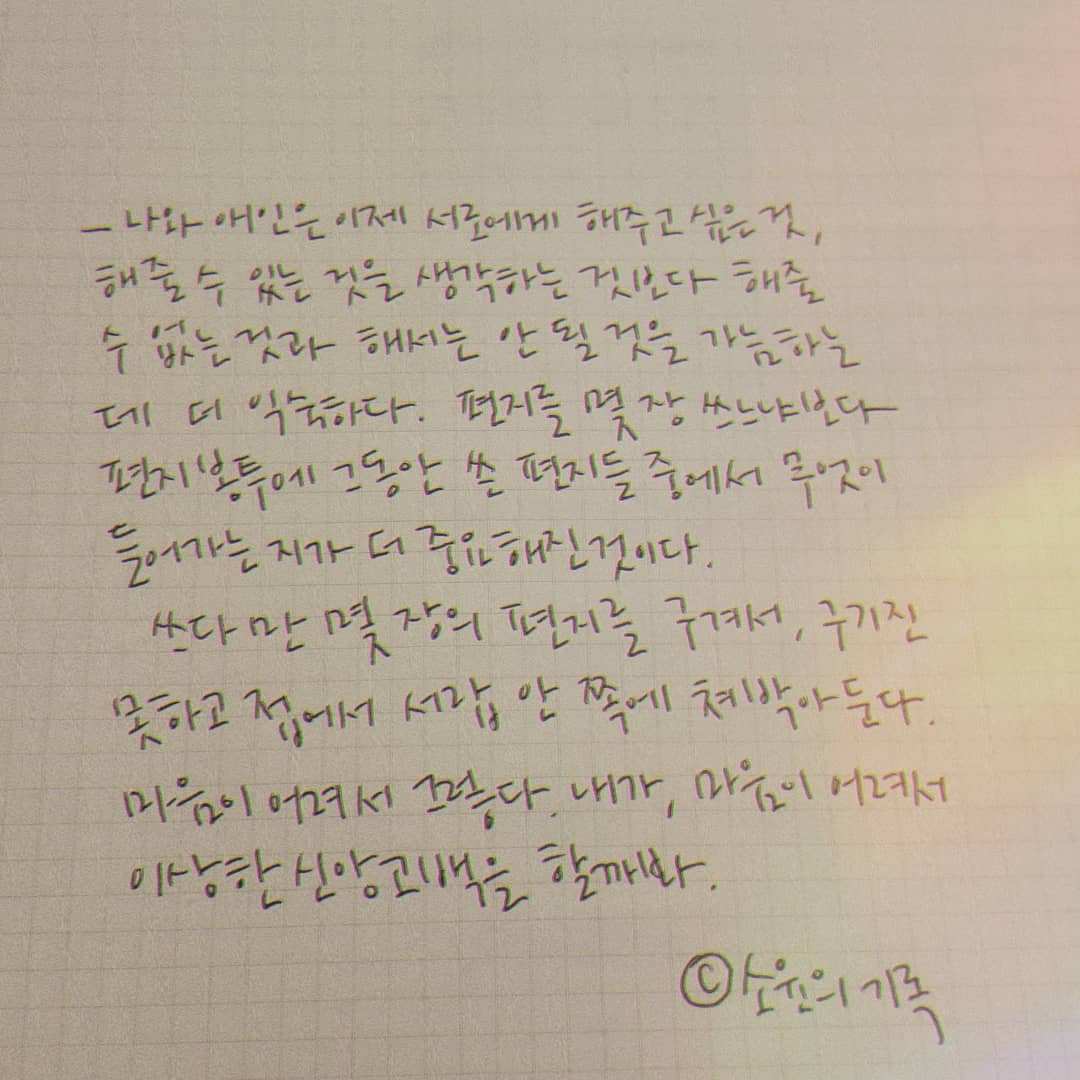 — 나와 애인은 이제 서로에게 해주고 싶은 것,
해줄 수 있는 것을 생각하는 것보다 해줄
수 없는 것과 해서는 안 될 것을 가늠하는
데 더 익숙하다. 편지를 몇 장 쓰느냐보다
편지봉투에 그동안 쓴 편지들 중에서 무엇이
들어가는 지가 더 중요해진 것이다.
쓰다 만 몇 장의 편지를 구겨서, 구기진
못하고 접에서 서랍 안 쪽에 쳐박아 둔다.
마음이 어려서 그렇다. 내가, 마음이 어려서
이상한 신앙고백을 할까봐.
ⓒ소윤의 기록